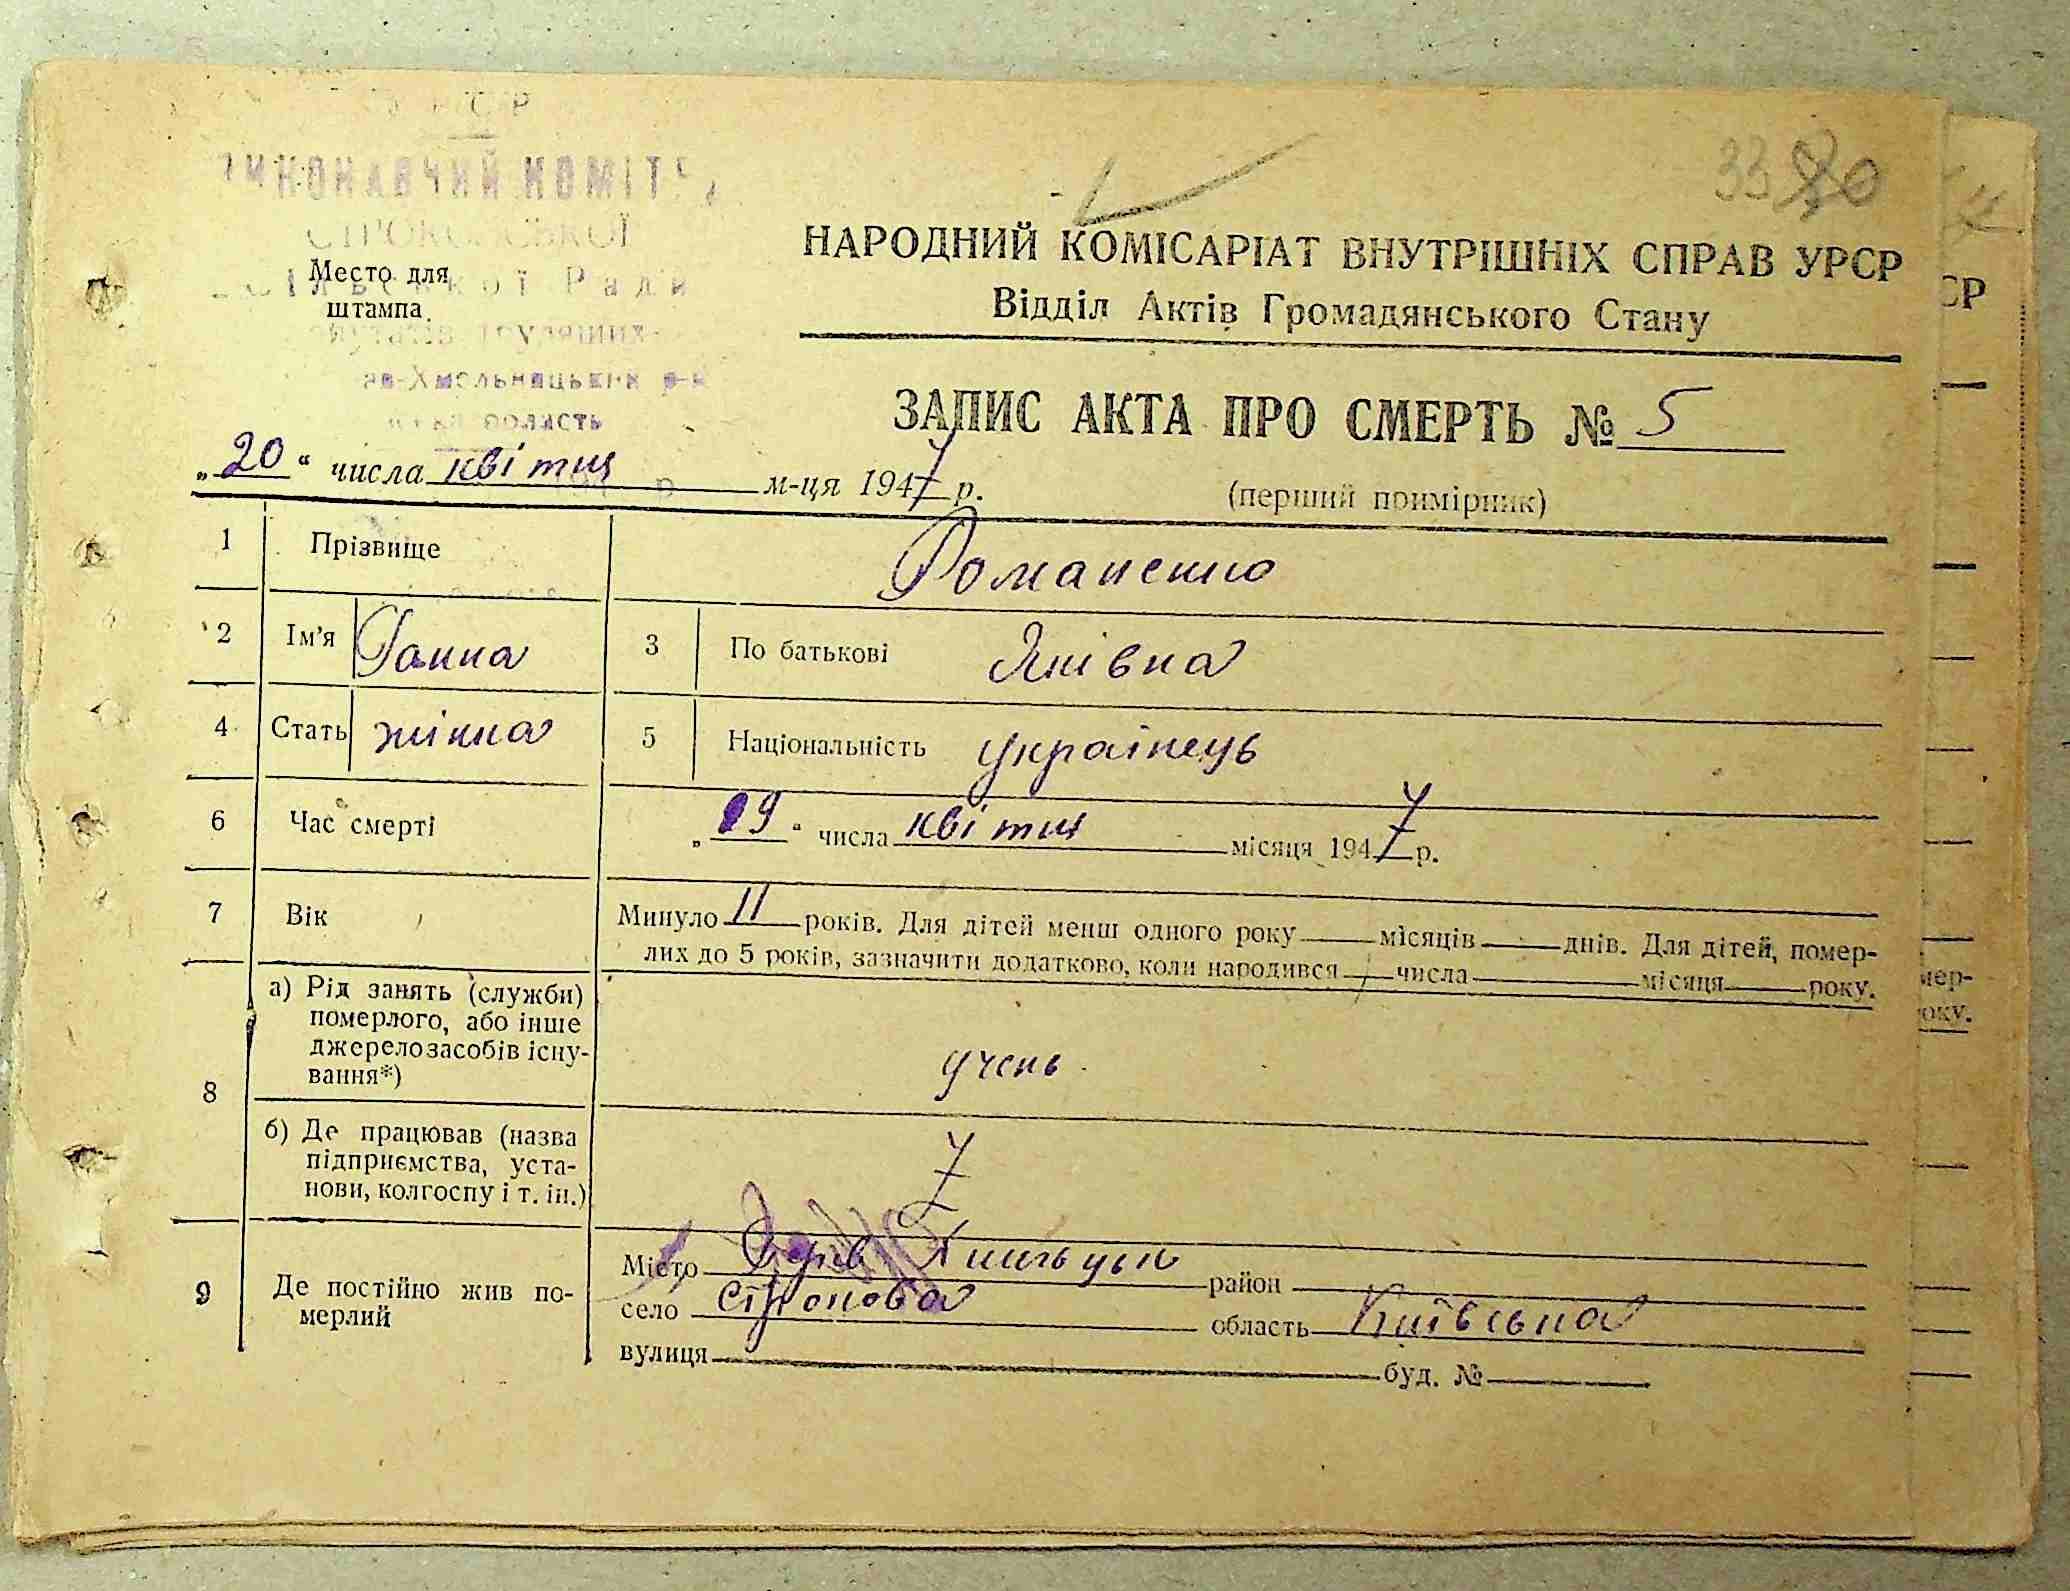 СР
33
ВИКОНАВЧИЙ КОМІТ
СТРОКОВСЬКОЇ
Сільської Ради
Место для
штампа
НАРОДНИЙ КОМІСАРІАТ ВНУТРІШНІХ СПРАВ УРСР
Відділ Актів Громадянського Стану
депутатів трудящих
-Хмельницький р-н
область
ЗАПИС АКТА ПРО СМЕРТЬ № 5
„20“ числа квітня м-ця 1947 р.
(перший примірник)
1 Прізвище Романенко
2 Ім'я Ганна 3 По батькові
4 Стать жінка 5 Національність українець
6 Час смерті „19“ числа квітня місяця 1947 р.
7 Вік Минуло 11 років. Для дітей менш одного року місяців днів. Для дітей, помер-
лих до 5 років, зазначити додатково, коли народився числа місяця року.
8 а) Рід занять (служби)
померлого, або інше
джерело засобів існу-
вання*)
учень
б) Де працював (назва
підприємства, уста-
нови, колгоспу і т. ін.)
9 Де постійно жив по-
мерлий
Місто район
село Строкова область Київська
вулиця буд. №
СР
мер-
оку.